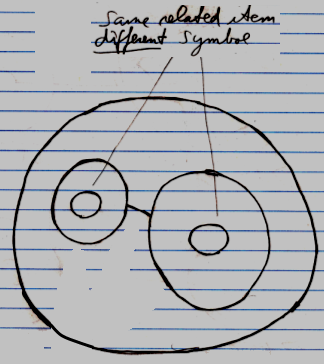 Same related item
different symbol